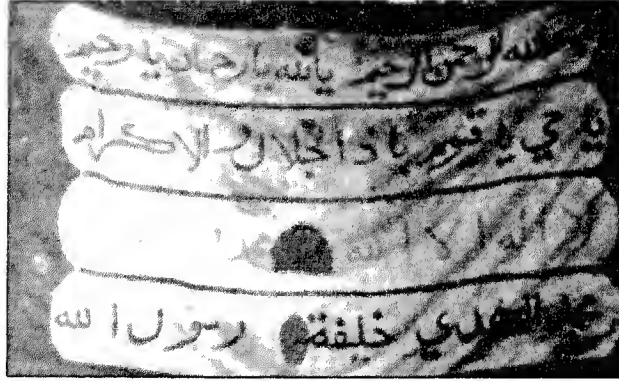 الله الرحمن الرحيم يالله يارحمان يارحيم
ياحي ياقيوم ياذالجلال والاكرام
لا اله الا الله
محمد المهدي خليفة رسول الله